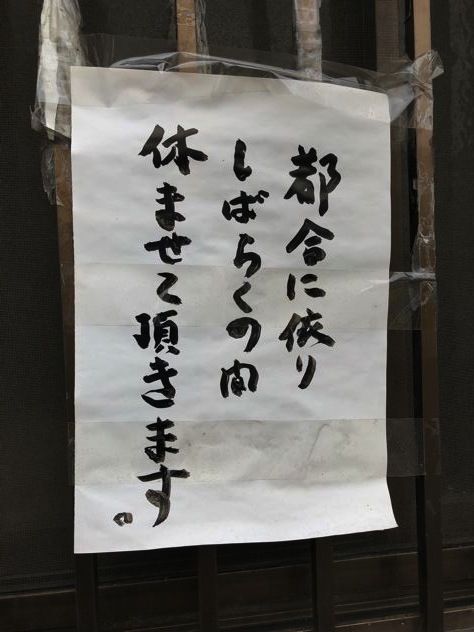 都合に依り
しばらくの間
休ませて頂きます。